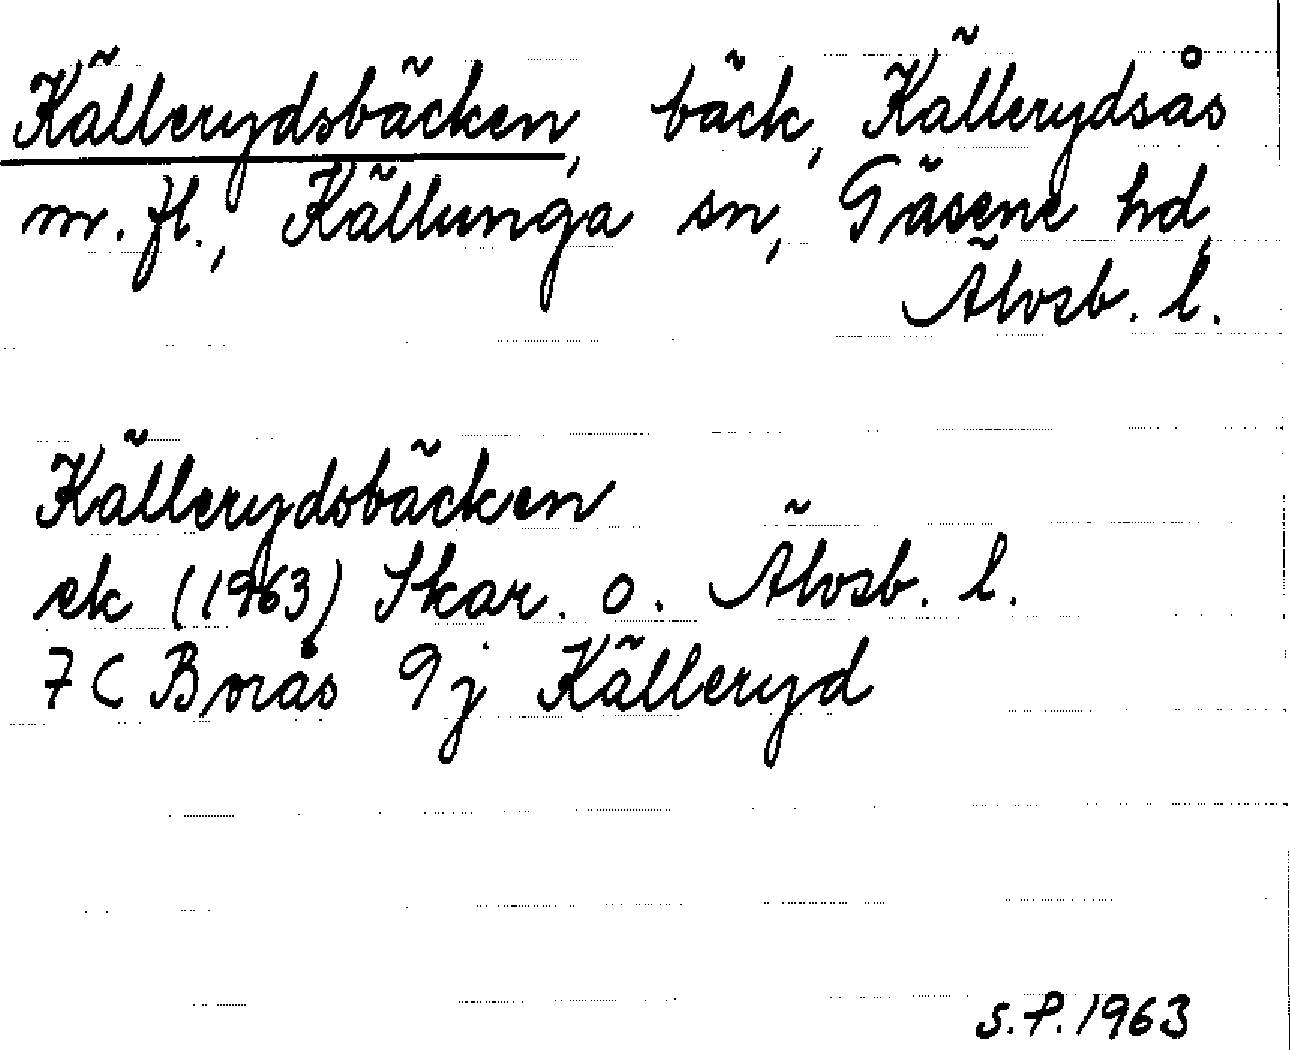 Källerydsbäcken, bäck, Källerydsås
m.fl., Källunga sn, Gäsene hd,
Älvsb. l.
Källerydsbäcken
ek (1963) Skar. o. Älvsb. l.
7C Borås 9j Källeryd
S.P. 1963